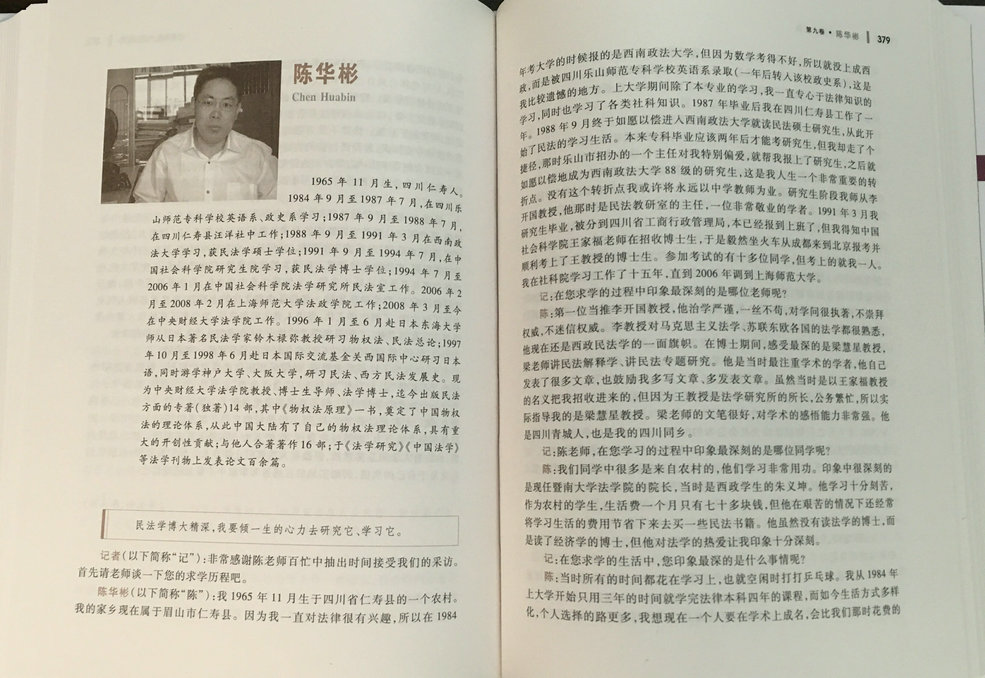 陈华彬
Chen Huabin
1965 年 11 月生，四川仁寿人。
1984 年 9 月至 1987 年 7 月，在四川乐
山师范专科学校英语系、政史系学习；1987 年 9 月至 1988 年 7 月，
在四川仁寿县汪洋社中工作；1988 年 9 月至 1991 年 3 月在西南政
法大学学习，获民法学硕士学位；1991 年 9 月至 1994 年 7 月，在中
国社会科学院研究生院学习，获民法学博士学位；1994 年 7 月至
2006 年 1 月在中国社会科学院法学研究所民法室工作。2006 年 2
月至 2008 年 2 月在上海师范大学法政学院工作；2008 年 3 月至今
在中央财经大学法学院工作。1996 年 1 月至 6 月赴日本东海大学
师从日本著名民法学家铃木禄弥教授研习物权法、民法总论；1997
年 10 月至 1998 年 6 月赴日本国际交流基金关西国际中心研习日本
语，同时游学神户大学、大阪大学，研习民法、西方民法发展史。现
为中央财经大学法学院教授、博士生导师、法学博士，迄今出版民法
方面的专著（独著）14 部，其中《物权法原理》一书，奠定了中国物权
法的理论体系，从此中国大陆有了自己的物权法理论体系，具有重
大的开创性贡献；与他人合著著作 16 部；于《法学研究》《中国法学》
等法学刊物上发表论文百余篇。
民法学博大精深，我要倾一生的心力去研究它、学习它。
记者（以下简称“记”）：非常感谢陈老师百忙中抽出时间接受我们的采访。
首先请老师谈一下您的求学历程吧。
陈华彬（以下简称“陈”）：我 1965 年 11 月生于四川省仁寿县的一个农村。
我的家乡现在属于眉山市仁寿县。因为我一直对法律很有兴趣，所以在 1984
第九卷·陈华彬 379
年考大学的时候报的是西南政法大学，但因为数学考得不好，所以就没上成西
政，而是被四川乐山师范专科学校英语系录取（一年后转入该校政史系），这是
我比较遗憾的地方。上大学期间除了本专业的学习，我一直专心于法律知识的
学习，同时也学习了各类社科知识。1987 年毕业后我在四川仁寿县工作了一
年。1988 年 9 月终于如愿以偿进入西南政法大学就读民法硕士研究生，从此开
始了民法的学习生活。本来专科毕业应该两年后才能考研究生，但我却走了个
捷径，那时乐山市招办的一个主任对我特别偏爱，就帮我报上了研究生，之后就
如愿以偿地成为西南政法大学 88 级的研究生，这是我人生一个非常重要的转
折点。没有这个转折点我或许将永远以中学教师为业。研究生阶段我师从李
开国教授，他那时是民法教研室的主任，一位非常敬业的学者。1991 年 3 月我
研究生毕业，被分到四川省工商行政管理局，本已经报到上班了，但我得知中国
社会科学院王家福老师在招收博士生，于是毅然坐火车从成都来到北京报考并
顺利考上了王教授的博士生。参加考试的有十多位同学，但考上的就我一人。
我在社科院学习工作了十五年，直到 2006 年调到上海师范大学。
记：在您求学的过程中印象最深刻的是哪位老师呢？
陈：第一位当推李开国教授，他治学严谨，一丝不苟，对学问很执著，不崇拜
权威，不迷信权威。李教授对马克思主义法学、苏联东欧各国的法学都很熟悉，
他现在还是西政民法学的一面旗帜。在博士期间，感受最深的是梁慧星教授，
梁老师讲民法解释学、讲民法专题研究。他是当时最注重学术的学者，他自己
发表了很多文章，也鼓励我多写文章、多发表文章。虽然当时是以王家福教授
的名义把我招收进来的，但因为王教授是法学研究所的所长，公务繁忙，所以实
际指导我的是梁慧星教授。梁老师的文笔很好，对学术的感悟能力非常强。他
是四川青城人，也是我的四川同乡。
记：陈老师，在您学习的过程中印象最深刻的是哪位同学呢？
陈：我们同学中很多是来自农村的，他们学习非常用功。印象中很深刻的
是现任暨南大学法学院的院长，当时是西政学生的朱义坤。他学习十分刻苦，
作为农村的学生，生活费一个月只有七十多块钱，但他在艰苦的情况下还经常
将学习生活的费用节省下来去买一些民法书籍。他虽然没有读法学的博士，而
是读了经济学的博士，但他对法学的热爱让我印象十分深刻。
记：在您求学的生活中，您印象最深的是什么事情呢？
陈：当时所有的时间都花在学习上，也就空闲时打打乒乓球。我从 1984 年
上大学开始只用三年的时间就学完法律本科四年的课程，而如今生活方式多样
化，个人选择的路更多，我想现在一个人要在学术上成名，会比我们那时花费的